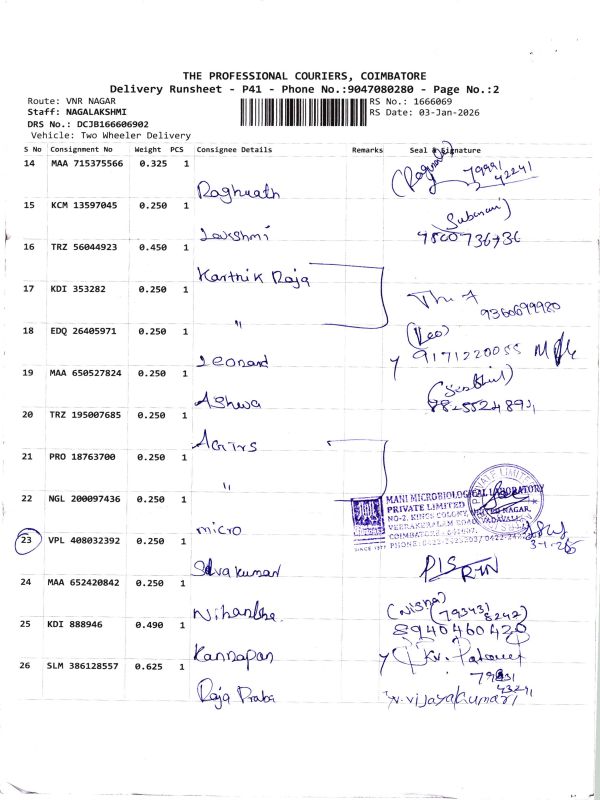 THE PROFESSIONAL COURIERS, COIMBATORE
Delivery Runsheet - P41 - Phone No.:9047080280 - Page No.:2
Route: VNR NAGAR
RS No.: 1666069
Staff: NAGALAKSHMI
RS Date: 03-Jan-2026
DRS No.: DCJB166606902
Vehicle: Two Wheeler Delivery
S No Consignment No Weight PCS Consignee Details Remarks Seal & Signature
14 MAA 715375566 0.325 1
Raghunath
79991
42241
15 KCM 13597045 0.250 1
Lakshmi
16 TRZ 56044923 0.450 1
Karthik Raja
17 KDI 353282 0.250 1
"
9360699980
18 EDQ 26405971 0.250 1
Leonard
(Leo)
9171220055
19 MAA 650527824 0.250 1
Ashwa
20 TRZ 195007685 0.250 1
21 PRO 18763700 0.250 1
"
22 NGL 200097436 0.250 1
micro
MANI MICROBIOLOGICAL LABORATORY
PRIVATE LIMITED
NO-2, KINGS COLONY, UNITED NAGAR,
VEERAKERALAM ROAD, VADAVALLI
COIMBATORE
SINCE 1977
23 VPL 408032392 0.250 1
Selvakumar
24 MAA 652420842 0.250 1
Nihantha.
(Nisha)
25 KDI 888946 0.490 1
8940460420
Kannapan
26 SLM 386128557 0.625 1
Raja Praba
V. Vijayakumari